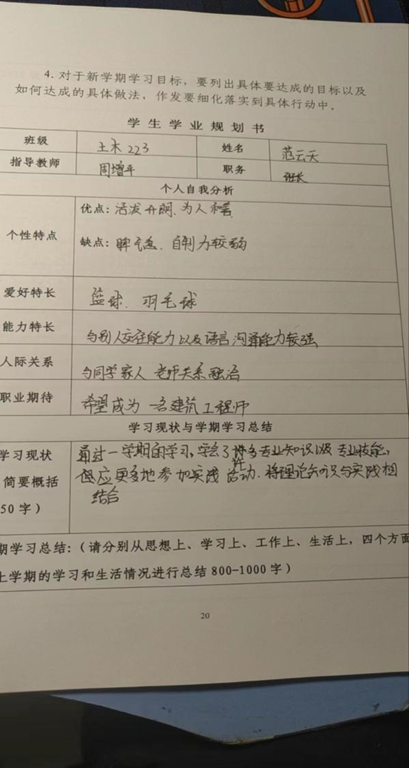 4. 对于新学期学习目标，要列出具体要达成的目标以及
如何达成的具体做法，作发要细化落实到具体行动中。
学生学业规划书
班级 土木223 姓名 范云天
指导教师 周增平 职务
个人自我分析
个性特点
优点：活泼开朗、为人和善
缺点：脾气急、自制力较弱
爱好特长 篮球、羽毛球
能力特长 与别人交往能力以及语言沟通能力较强
人际关系 与同学家人 老师关系融洽
职业期待 希望成为一名建筑工程师
学习现状与学期学习总结
学习现状
简要概括
50字）
通过一学期的学习，学会了许多专业知识以及专业技能，
但应更多地参加实践活动，将理论知识与实践相
结合
期学习总结：（请分别从思想上、学习上、工作上、生活上，四个方面
上学期的学习和生活情况进行总结800-1000字）
20